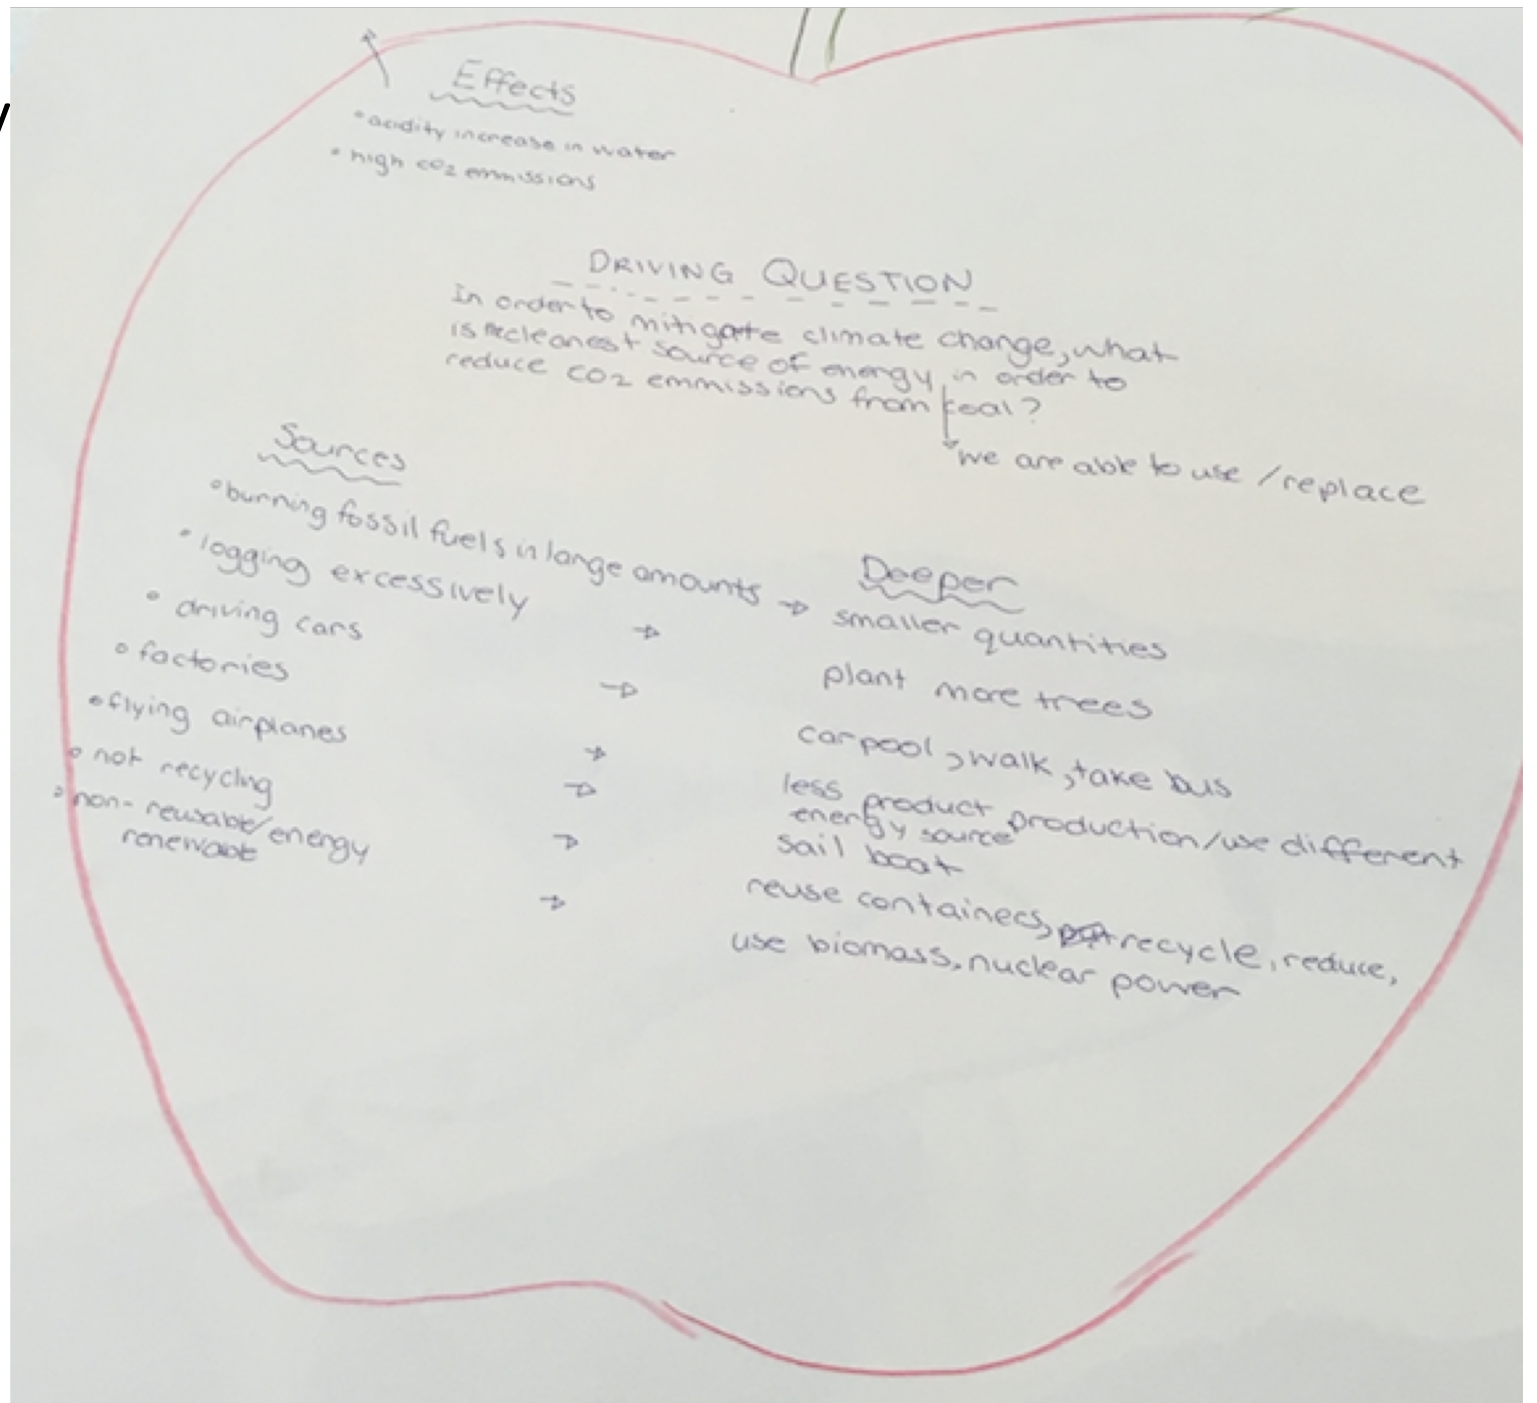 Effects
• acidity increase in water
• high CO2 emmissions
DRIVING QUESTION
In order to mitigate climate change, what
is the cleanest source of energy in order to
reduce CO2 emmissions from coal?
we are able to use / replace
Sources
• burning fossil fuels in large amounts →
• logging excessively →
• driving cars →
• factories →
• flying airplanes →
• not recycling →
• non-reusable/energy →
renewable
Deeper
smaller quantities
plant more trees
carpool, walk, take bus
less product production/use different
energy source
sail boat
reuse containers, recycle, reduce,
use biomass, nuclear power